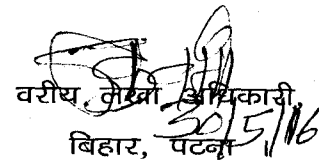 वरीय लेखा अधिकारी,
बिहार, पटना
30/5/16